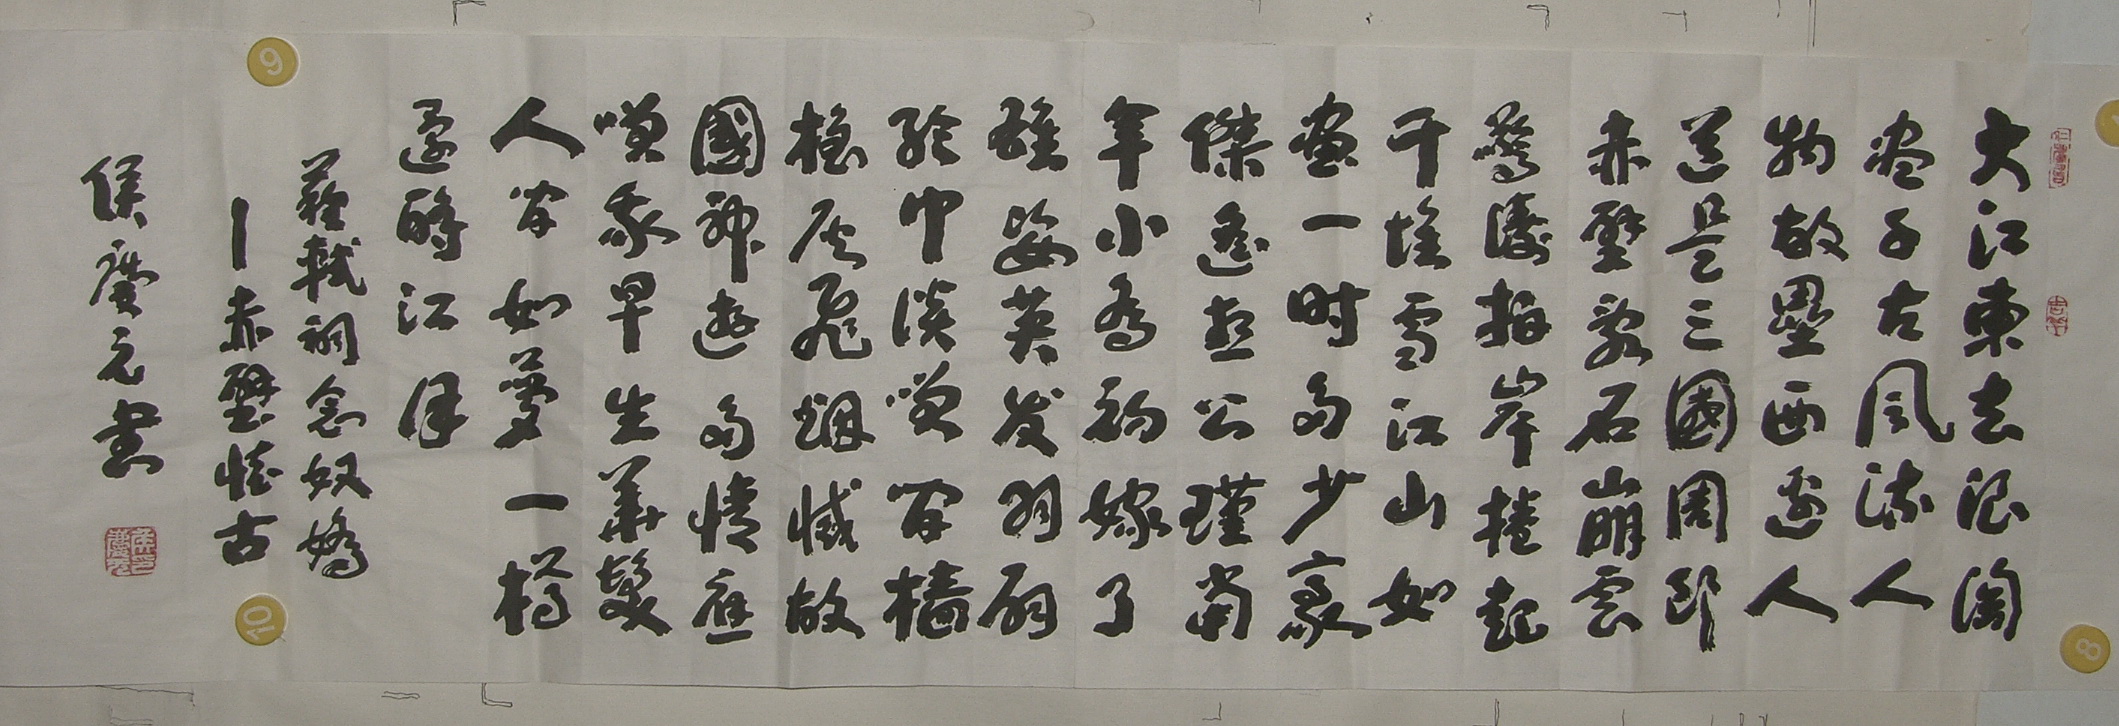 大江東去浪淘
盡千古风流人
物故壘西邊人
道是三國周郎
赤壁亂石崩雲
驚濤拍岸捲起
千堆雪江山如
畫一时多少豪
傑遙想公瑾當
年小喬初嫁了
雄姿英发羽扇
綸巾談笑間檣
櫓灰飛烟滅故
國神遊多情應
笑我早生華髮
人间如夢一樽
還酹江月
蘇軾詞念奴嬌
—赤壁懷古
侯慶元書
9
10
8